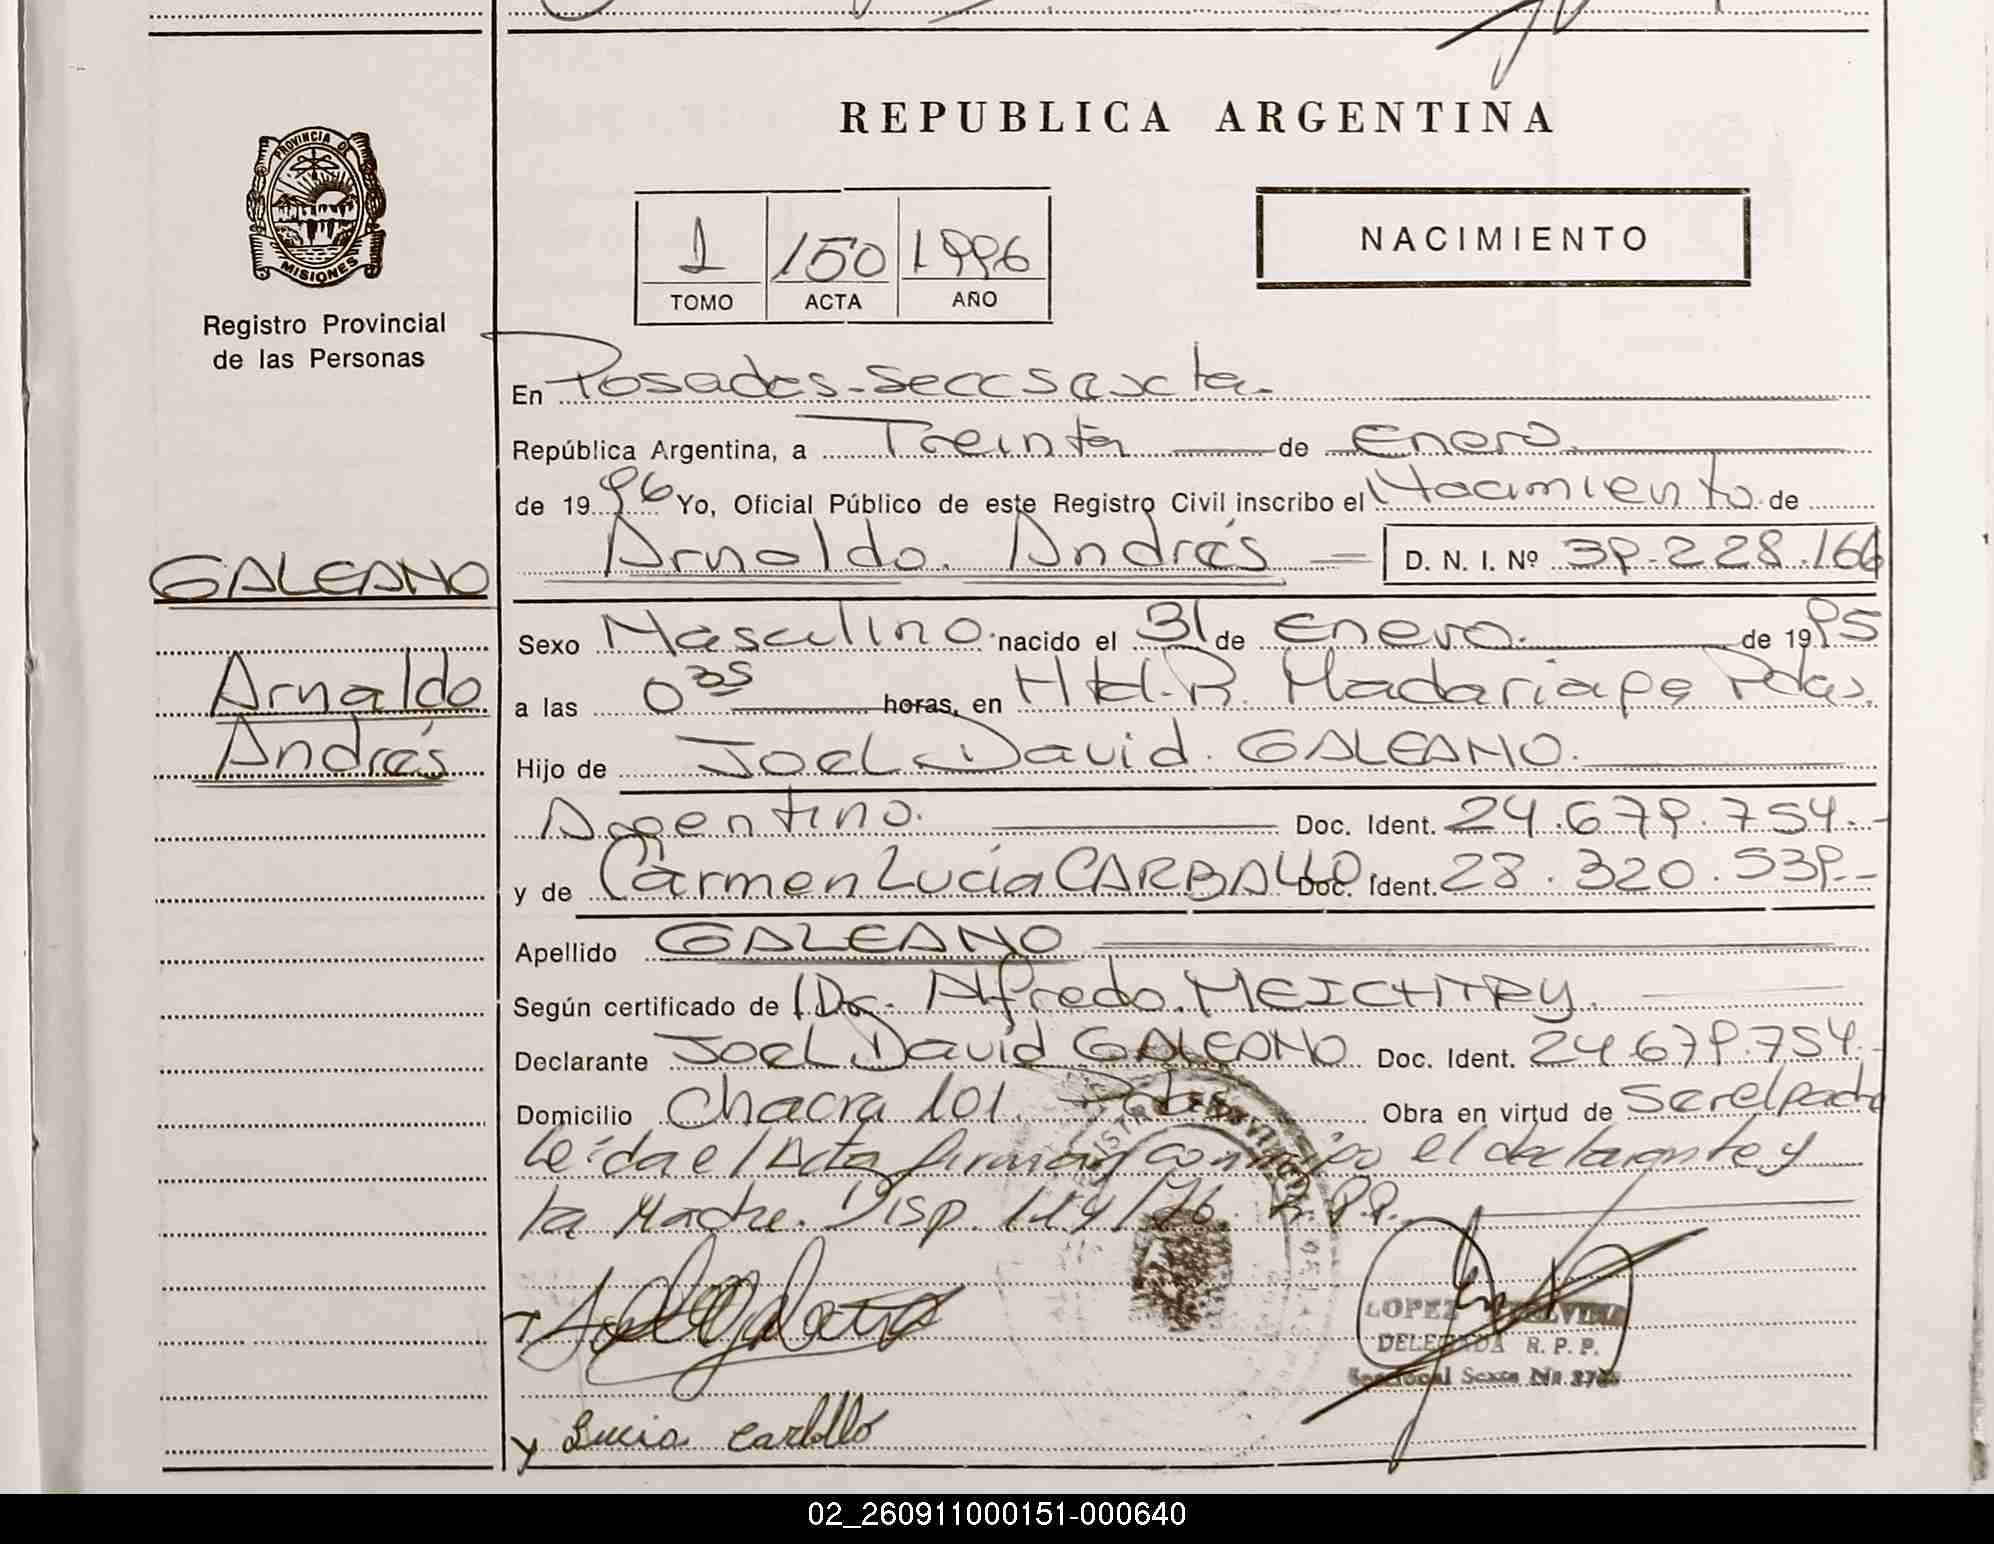 REPUBLICA ARGENTINA
PROVINCIA DE
MISIONES
Registro Provincial
de las Personas
1 150 1996
TOMO ACTA AÑO
NACIMIENTO
En Posadas-Secc Sexta-
República Argentina, a Treinta de Enero.
de 1996 Yo, Oficial Público de este Registro Civil inscribo el Nacimiento de
Arnaldo. Andrés D. N. I. Nº 39.228.166
GALEANO
Arnaldo
Andrés
Sexo Masculino. nacido el 31 de Enero. de 1995
a las 0 35 horas, en Htal. R. Madariaga Pdas.
Hijo de Joel David. GALEANO.
Argentino. Doc. Ident. 24.679.754.-
y de Carmen Lucía CARBALLO. Doc. Ident. 28.320.539.-
Apellido GALEANO
Según certificado de Dr. Alfredo. MEICHTRY.
Declarante Joel David GALEANO Doc. Ident. 24.679.754.-
Domicilio Chacra 101. Pdas Obra en virtud de Ser el padre
Leída el Acta firman conmigo el declarante y
la Madre. Disp. 114/76. R.P.P.
LOPEZ
DELEGADA R. P. P.
Seccional Sexta
y Lucia Carballo
02_260911000151-000640